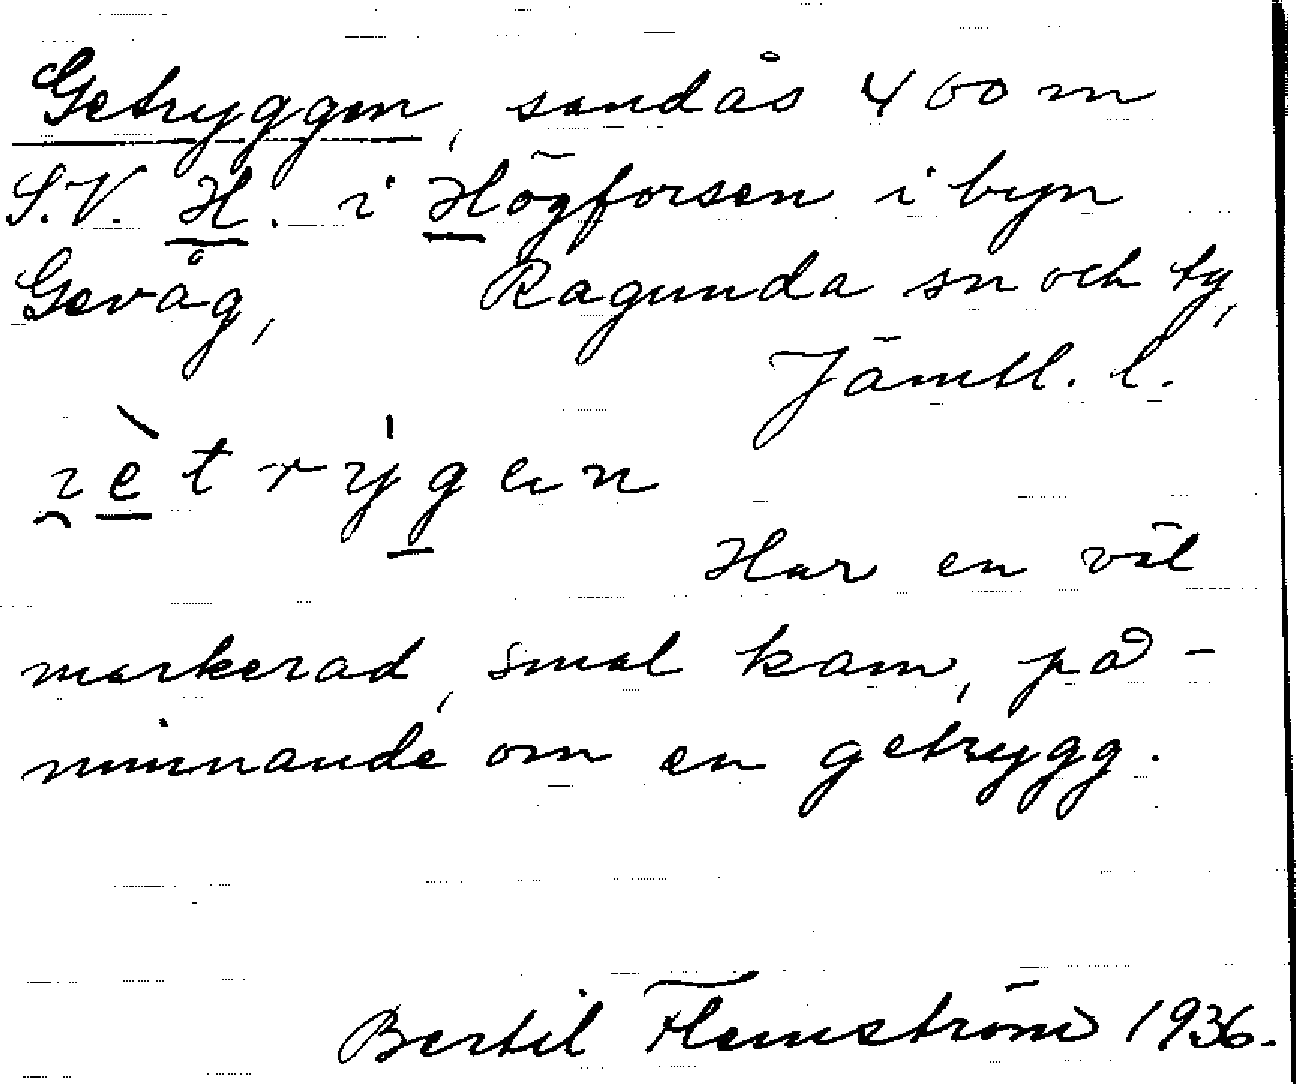 Getryggen, sandås 400 m
S.V. H. i Högforsen i byn
Gevåg, Ragunda sn och tg,
Jämtl. l.
Har en väl
markerad, smal kam, på-
minnande om en getrygg.
Bertil Flemström 1936.